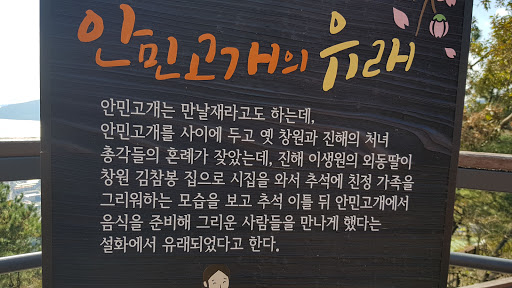 안민고개의 유래
안민고개는 만날재라고도 하는데,
안민고개를 사이에 두고 옛 창원과 진해의 처녀
총각들의 혼례가 잦았는데, 진해 이생원의 외동딸이
창원 김참봉 집으로 시집을 와서 추석에 친정 가족을
그리워하는 모습을 보고 추석 이틀 뒤 안민고개에서
음식을 준비해 그리운 사람들을 만나게 했다는
설화에서 유래되었다고 한다.